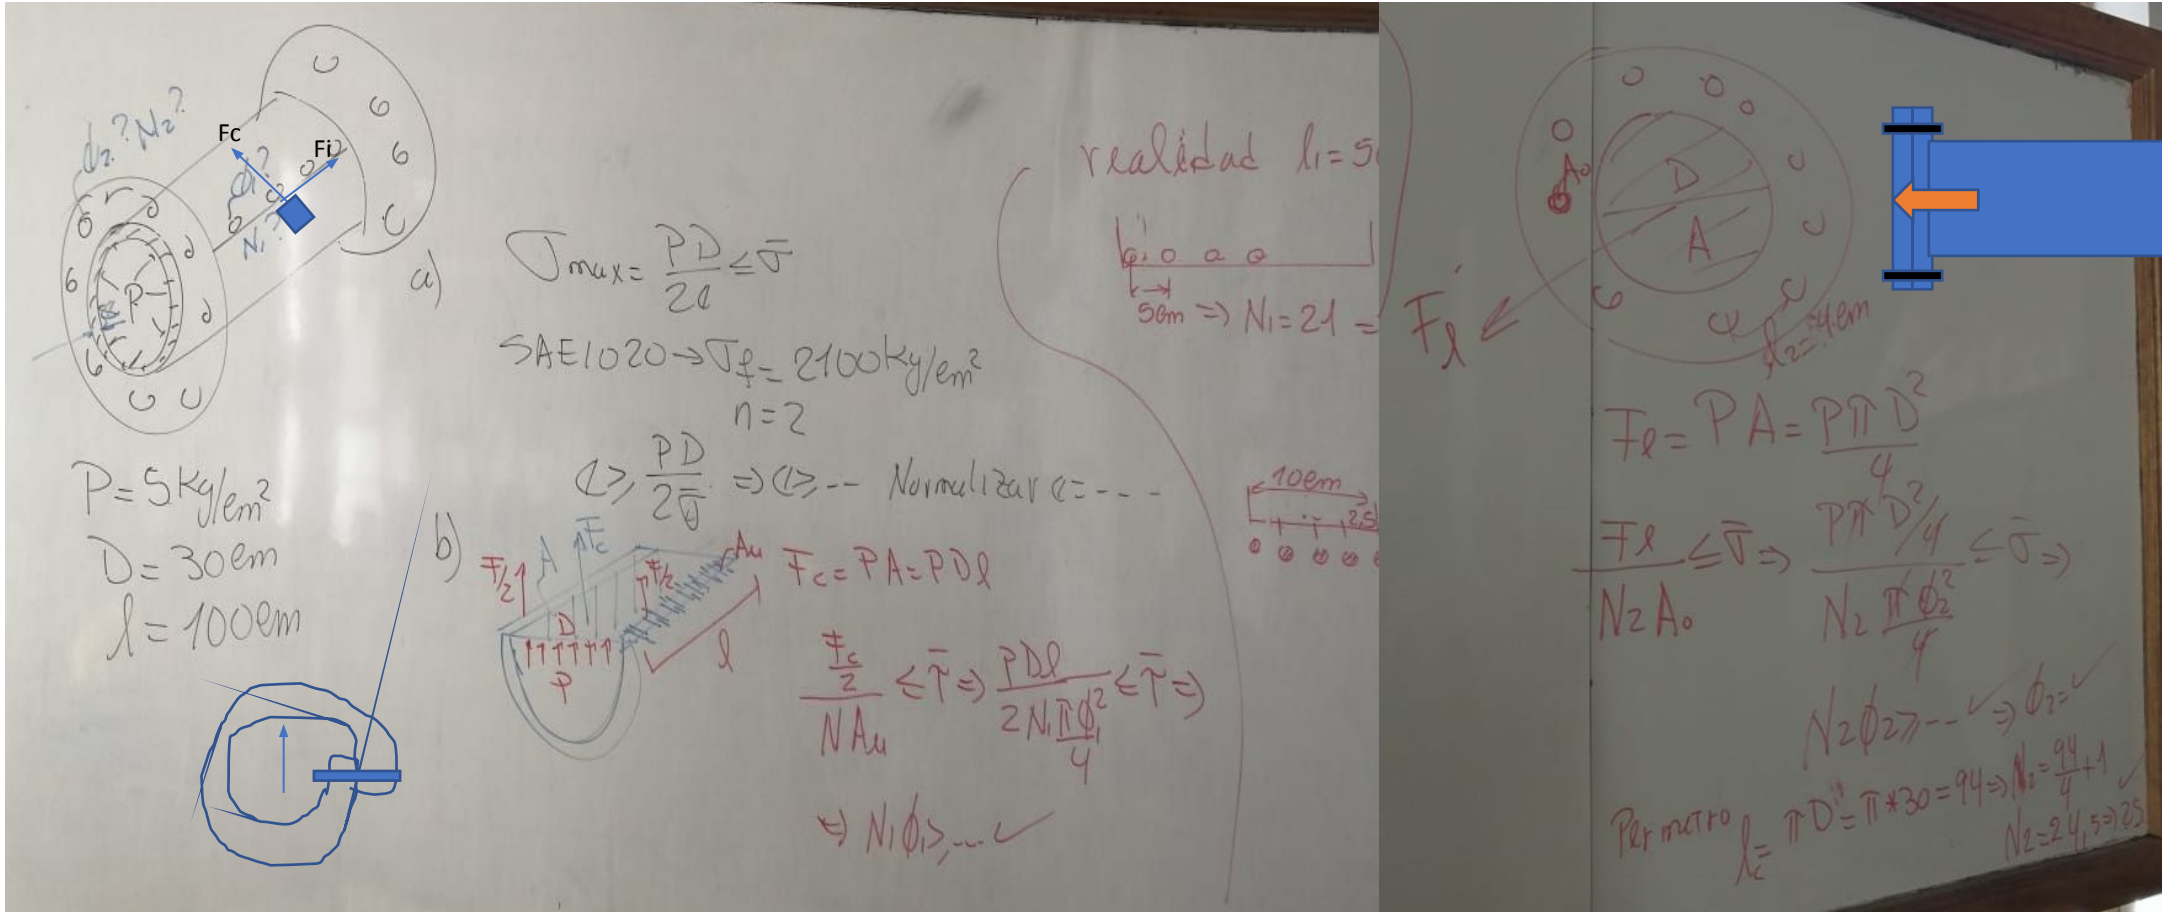 d₂? N₂?
Fc
Fi
d₁?
N₁?
P
P = 5 Kg/cm²
D = 30cm
l = 100cm
a)
σmax = PD/2e ≤ σ̄
SAE1020 → σf = 2100 Kg/cm²
n = 2
e ≥ PD/2σ̄ ⇒ e ≥ -- Normalizar e = ----
b)
F/2
A
Fc
F/2
Au
D
P
l
Fc = PA = PDl
(Fc/2)/(N Au) ≤ τ̄ ⇒ PDl/(2 N₁ πϕ₁²/4) ≤ τ̄ ⇒
⇒ N₁ϕ₁ ≥ ... ✓
realidad l₁ = 5
5cm ⇒ N₁ = 21 =
10cm
2,5
A₀
D
A
Fl
d₂ = 4cm
Fl = PA = PπD²/4
Fl/(N₂A₀) ≤ σ̄ ⇒ (PπD²/4)/(N₂ πϕ₂²/4) ≤ σ̄ ⇒
N₂ϕ₂ ≥ -- ✓ ⇒ ϕ₂ = ✓
Permetro lc = πD" = π*30 = 94 ⇒ N₂ = 94/4 + 1 ✓
N₂ = 24,5 ⇒ 25